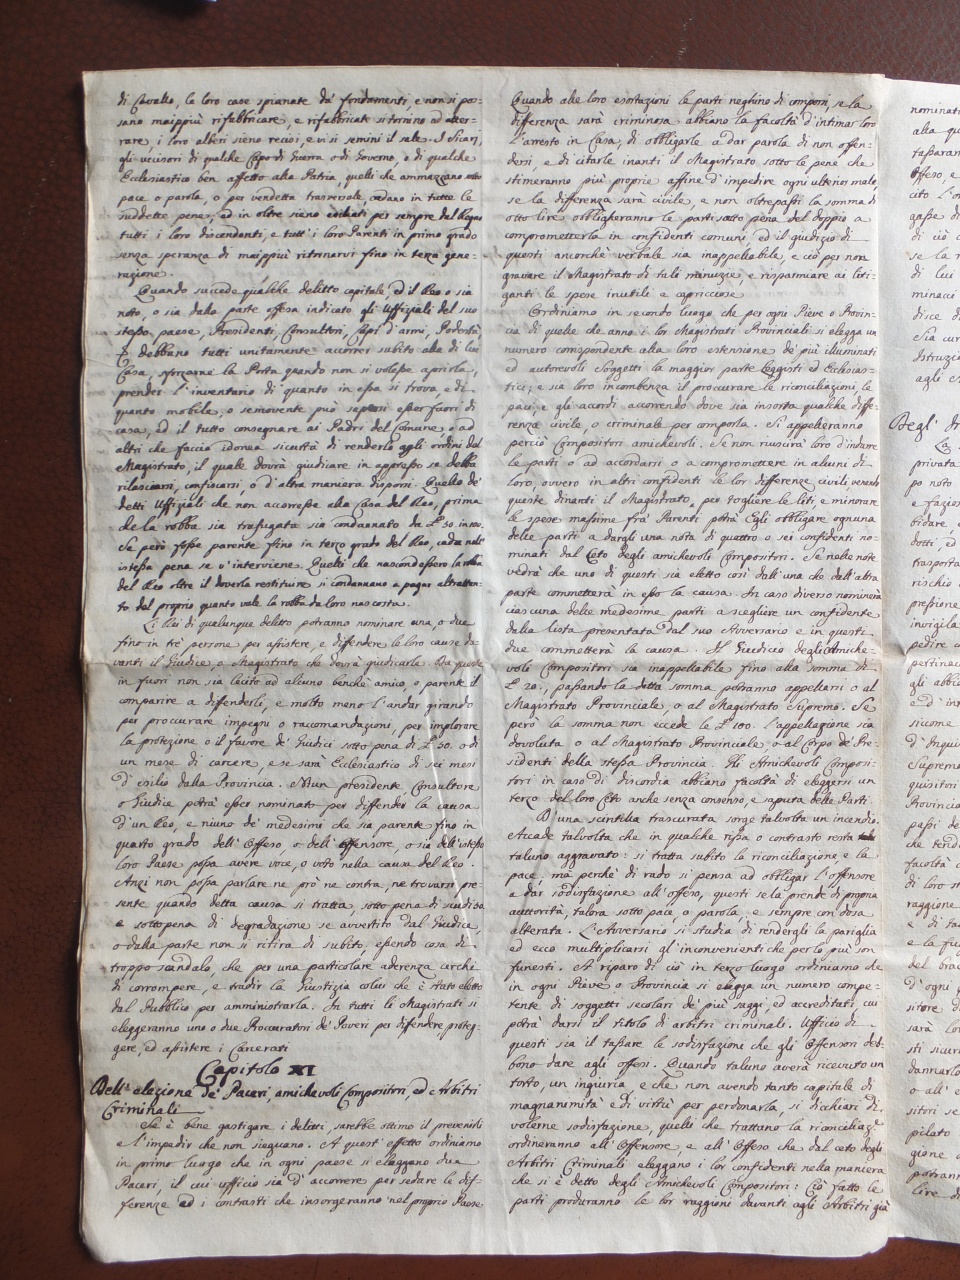 di Cavallo, le loro case spianate da' fondamenti, e non si pos-
sano maippiù rifabbricare, e rifabbricate si tornino ad atter-
rare, i loro alberi sieno recisi, e vi si semini il sale. I Sicarj,
gli uccisori di qualche Capo di Guerra o di Governo, o di qualche
Ecclesiastico ben affetto alla Patria, quelli che ammazzano sotto
pace o parola, o per vendetta trasversale cadano in tutte le
suddette pene, ed in oltre sieno esiliati per sempre dal Regno
tutti i loro discendenti, e tutt' i loro Parenti in primo grado
senza speranza di maippiù ritornarvi fino in terza gene-
razione.
Quando succede qualche delitto capitale, ed il Reo o sia
noto, o sia dalla parte offesa indicato gli Uffiziali del suo
stesso paese, Presidenti, Consultori, Capi d'armi, Podestà,
debbano tutti unitamente accorrer subito alla di lui
Casa, sforzarne la Porta quando non si volesse aprirla,
prender l'inventario di quanto in essa si trova, e di
quanto mobile, o semovente può sapersi esser fuori di
casa, ed il tutto consegnare ai Padri del Comune o ad
altri che faccia idonea sicurtà di renderlo agli ordini del
Magistrato, il quale dovrà giudicare in appresso se debba
rilasciarsi, confiscarsi, o d'altra maniera disporsi. Quello de'
detti Uffiziali che non accorresse alla Casa del Reo, prima
che la robba sia trafugata sia condannato da £ 50. in 100.
Se però fosse parente fino in terzo grado del Reo, cada nell'
istessa pena se v'interviene. Quelli che nascondessero la robba
del Reo oltre il doverla restituire si condannano a pagar altrettan-
to del proprio quanto vale la robba da loro nascosta.
Li Rei di qualunque delitto potranno nominare una, o due
fino in trè persone per assistere e difendere le loro cause da-
vanti il Giudice, o Magistrato che dovrà giudicarle. Da queste
in fuori non sia lecito ad alcuno benchè amico, o parente il
comparire a difenderli, e molto meno l'andar girando
per proccurare impegni o raccomandazioni, per implorare
la protezione o il favore de' Giudici sotto pena di £ 50. o di
un mese di carcere, e se sarà Ecclesiastico di sei mesi
d'esilio dalla Provincia. Niun presidente, Consultore
o Giudice potrà esser nominato per diffender la causa
d'un Reo, e niuno de' medesimi che sia parente fino in
quarto grado dell'Offeso, o dell'offensore, o sia dell'istesso
loro Paese possa avere voce, o voto nella causa del Reo.
Anzi non possa parlare ne prò ne contra, ne trovarsi pre-
sente quando detta causa si tratta, sotto pena di
e sotto pena di degradazione se avvertito dal Giudice,
o dalla parte non si ritira di subito, essendo cosa di
troppo scandalo, che per una particolare aderenza cerchi
di corrompere, e tradir la Giustizia colui che è stato eletto
dal Pubblico per amministrarla. In tutti li Magistrati si
eleggeranno uno o due Proccuratori de' Poveri per difendere proteg-
gere, ed assistere i Carcerati.
Capitolo XI
Dell'elezione de' Paceri, amichevoli Compositori, ed Arbitri
Criminali
Se è bene gastigare i delitti, sarebbe ottimo il prevenirli
e l'impedir che non sieguano. A quest'effetto ordiniamo
in primo luogo che in ogni paese si eleggano due
Paceri, il cui ufficio sia d'accorrere per sedare le dif-
ferenze ed i contrasti che insorgeranno nel proprio Paese
Quando alle loro esortazioni le parti neghino di comporsi, se la
differenza sarà criminosa abbiano la facoltà d'intimar loro
l'arresto in Casa, di obbligarle a dar parola di non offen-
dersi, e di citarle inanti il Magistrato sotto le pene che
stimeranno più proprie affine d'impedire ogni ulterior male,
se la differenza sarà civile, e non oltrepassi la somma di
otto lire obbligheranno le parti sotto pena del doppio a
comprometterla in confidenti comuni ed il giudizio di
questi ancorchè verbale sia inappellabile, e ciò per non
gravare il Magistrato di tali minuzie, e risparmiare ai liti-
ganti le spese inutili e capricciose
Ordiniamo in secondo luogo che per ogni Pieve o Provin-
cia di quelle che anno i lor Magistrati Provinciali si elegga un
numero corrispondente alla loro estensione de' più illuminati
ed autorevoli Soggetti la maggior parte leggisti ed Ecclesias-
tici; e sia loro incombenza il procurare le riconciliazioni, le
paci, e gli accordi accorrendo dove sia insorta qualche diffe-
renza civile, o criminale per comporla. Si appelleranno
perciò Compositori amichevoli. Se non riuscirà loro d'indurre
le parti o ad accordarsi o a compromettere in alcuni di
loro, ovvero in altri confidenti le lor differenze civili
queste dinanti il Magistrato, per togliere le liti, e minorare
le spese massime fra' Parenti potrà Egli obbligare ognuna
delle parti a dargli una nota di quattro o sei confidenti no-
minati dal Ceto degli amichevoli Compositori. Se nelle note
vedrà che uno di questi sia eletto così dall'una che dell'altra
parte commetterà in esso la causa. In caso diverso nominerà
ciascuna delle medesime parti a scegliere un confidente
dalla lista presentata dal suo Avversario e in questi
due commetterà la causa. Il Giudicio degli Amiche-
voli Compositori sia inappellabile fino alla somma di
£ 20., passando la detta somma potranno appellarsi o al
Magistrato Provinciale, o al Magistrato Supremo. Se
però la somma non eccede le £ 100. l'appellazione sia
devoluta o al Magistrato Provinciale, o al Corpo de' Pre-
sidenti della stessa Provincia. Gli Amichevoli Composi-
tori in caso di discordia abbiano facoltà di eleggersi un
terzo del loro Ceto anche senza consenso, e saputa delle Parti.
D'una scintilla trascurata sorge talvolta un incendio.
Accade talvolta che in qualche rissa o contrasto resta
taluno aggravato: si tratta subito la riconciliazione, e la
pace, mà perchè di rado si pensa ad obbligar l'offensore
a dar sodisfazione all'offeso, questi se la prende di propria
auttorità, talora sotto pace, o parola, e sempre con dosa
alterata. L'Avversario si studia di rendergli la pariglia
ed ecco multiplicarsi gl'inconvenienti che per lo più son
funesti. A riparo di ciò in terzo luogo ordiniamo che
in ogni Pieve o Provincia si elegga un numero compe-
tente di soggetti secolari de' più saggi, ed accreditati, cui
potrà darsi il titolo di arbitri criminali. Ufficio di
questi sia il tassare le sodisfazione che gli Offensori deb-
bono dare agli offesi. Quando taluno averà ricevuto un
torto, un ingiuria, e che non avendo tanto capitale di
magnanimità e di virtù per perdonarla, si dichiari di
volerne sodisfazione, quelli che trattano la riconciliaz.e
ordineranno all'Offensore, e all'Offeso che dal ceto degli
Arbitri Criminali eleggano i lor confidenti nella maniera
che si è detto degli Amichevoli Compositori: Ciò fatto le
parti produranno le lor raggioni davanti agli Arbitri già